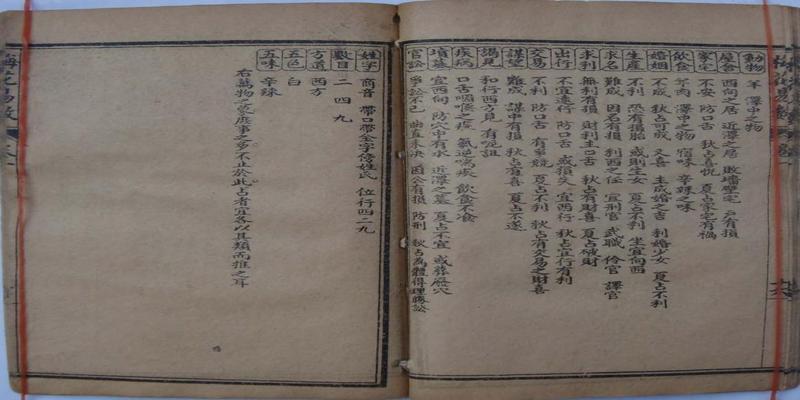 動物 羊 澤中之物
屋舍 西向之居 近澤之居 敗墻壁宅 戶有損
家宅 不安 防口舌 秋占喜悅 夏占家宅有禍
飲食 羊肉 澤中之物 宿味 辛辣之味
婚姻 不成 秋占可成 又喜 主成婚之吉 利婚少女 夏占不利
生產 不利 恐有損胎 或則生女 夏占不利 坐宜向西
求名 難成 因名有損 利西之任 宜刑官 武職 伶官 譯官
求利 無利有損 財利主口舌 秋占有財喜 夏占破財
出行 不宜遠行 防口舌 或損失 宜西行 秋占宜行有利
交易 不利 防口舌 有爭競 夏占不利 秋占有交易之財喜
謀望 難成 謀中有損 秋占有喜 夏占不遂
謁見 利行西方見 有咒詛
疾病 口舌咽喉之疾 氣逆喘疾 飲食不飡
墳墓 宜西向 防穴中有水 近澤之墓 夏占不宜 或葬廢穴
官訟 爭訟不已 曲直未決 因公有損 防刑 秋占為體得理勝訟
姓字 商音 帶口帶金字傍姓氏 位行四二九
數目 二 四 九
方道 西方
五色 白
五味 辛辣
右萬物之象庶事之多不止於此占者宜各以其類而推之耳
梅花易數